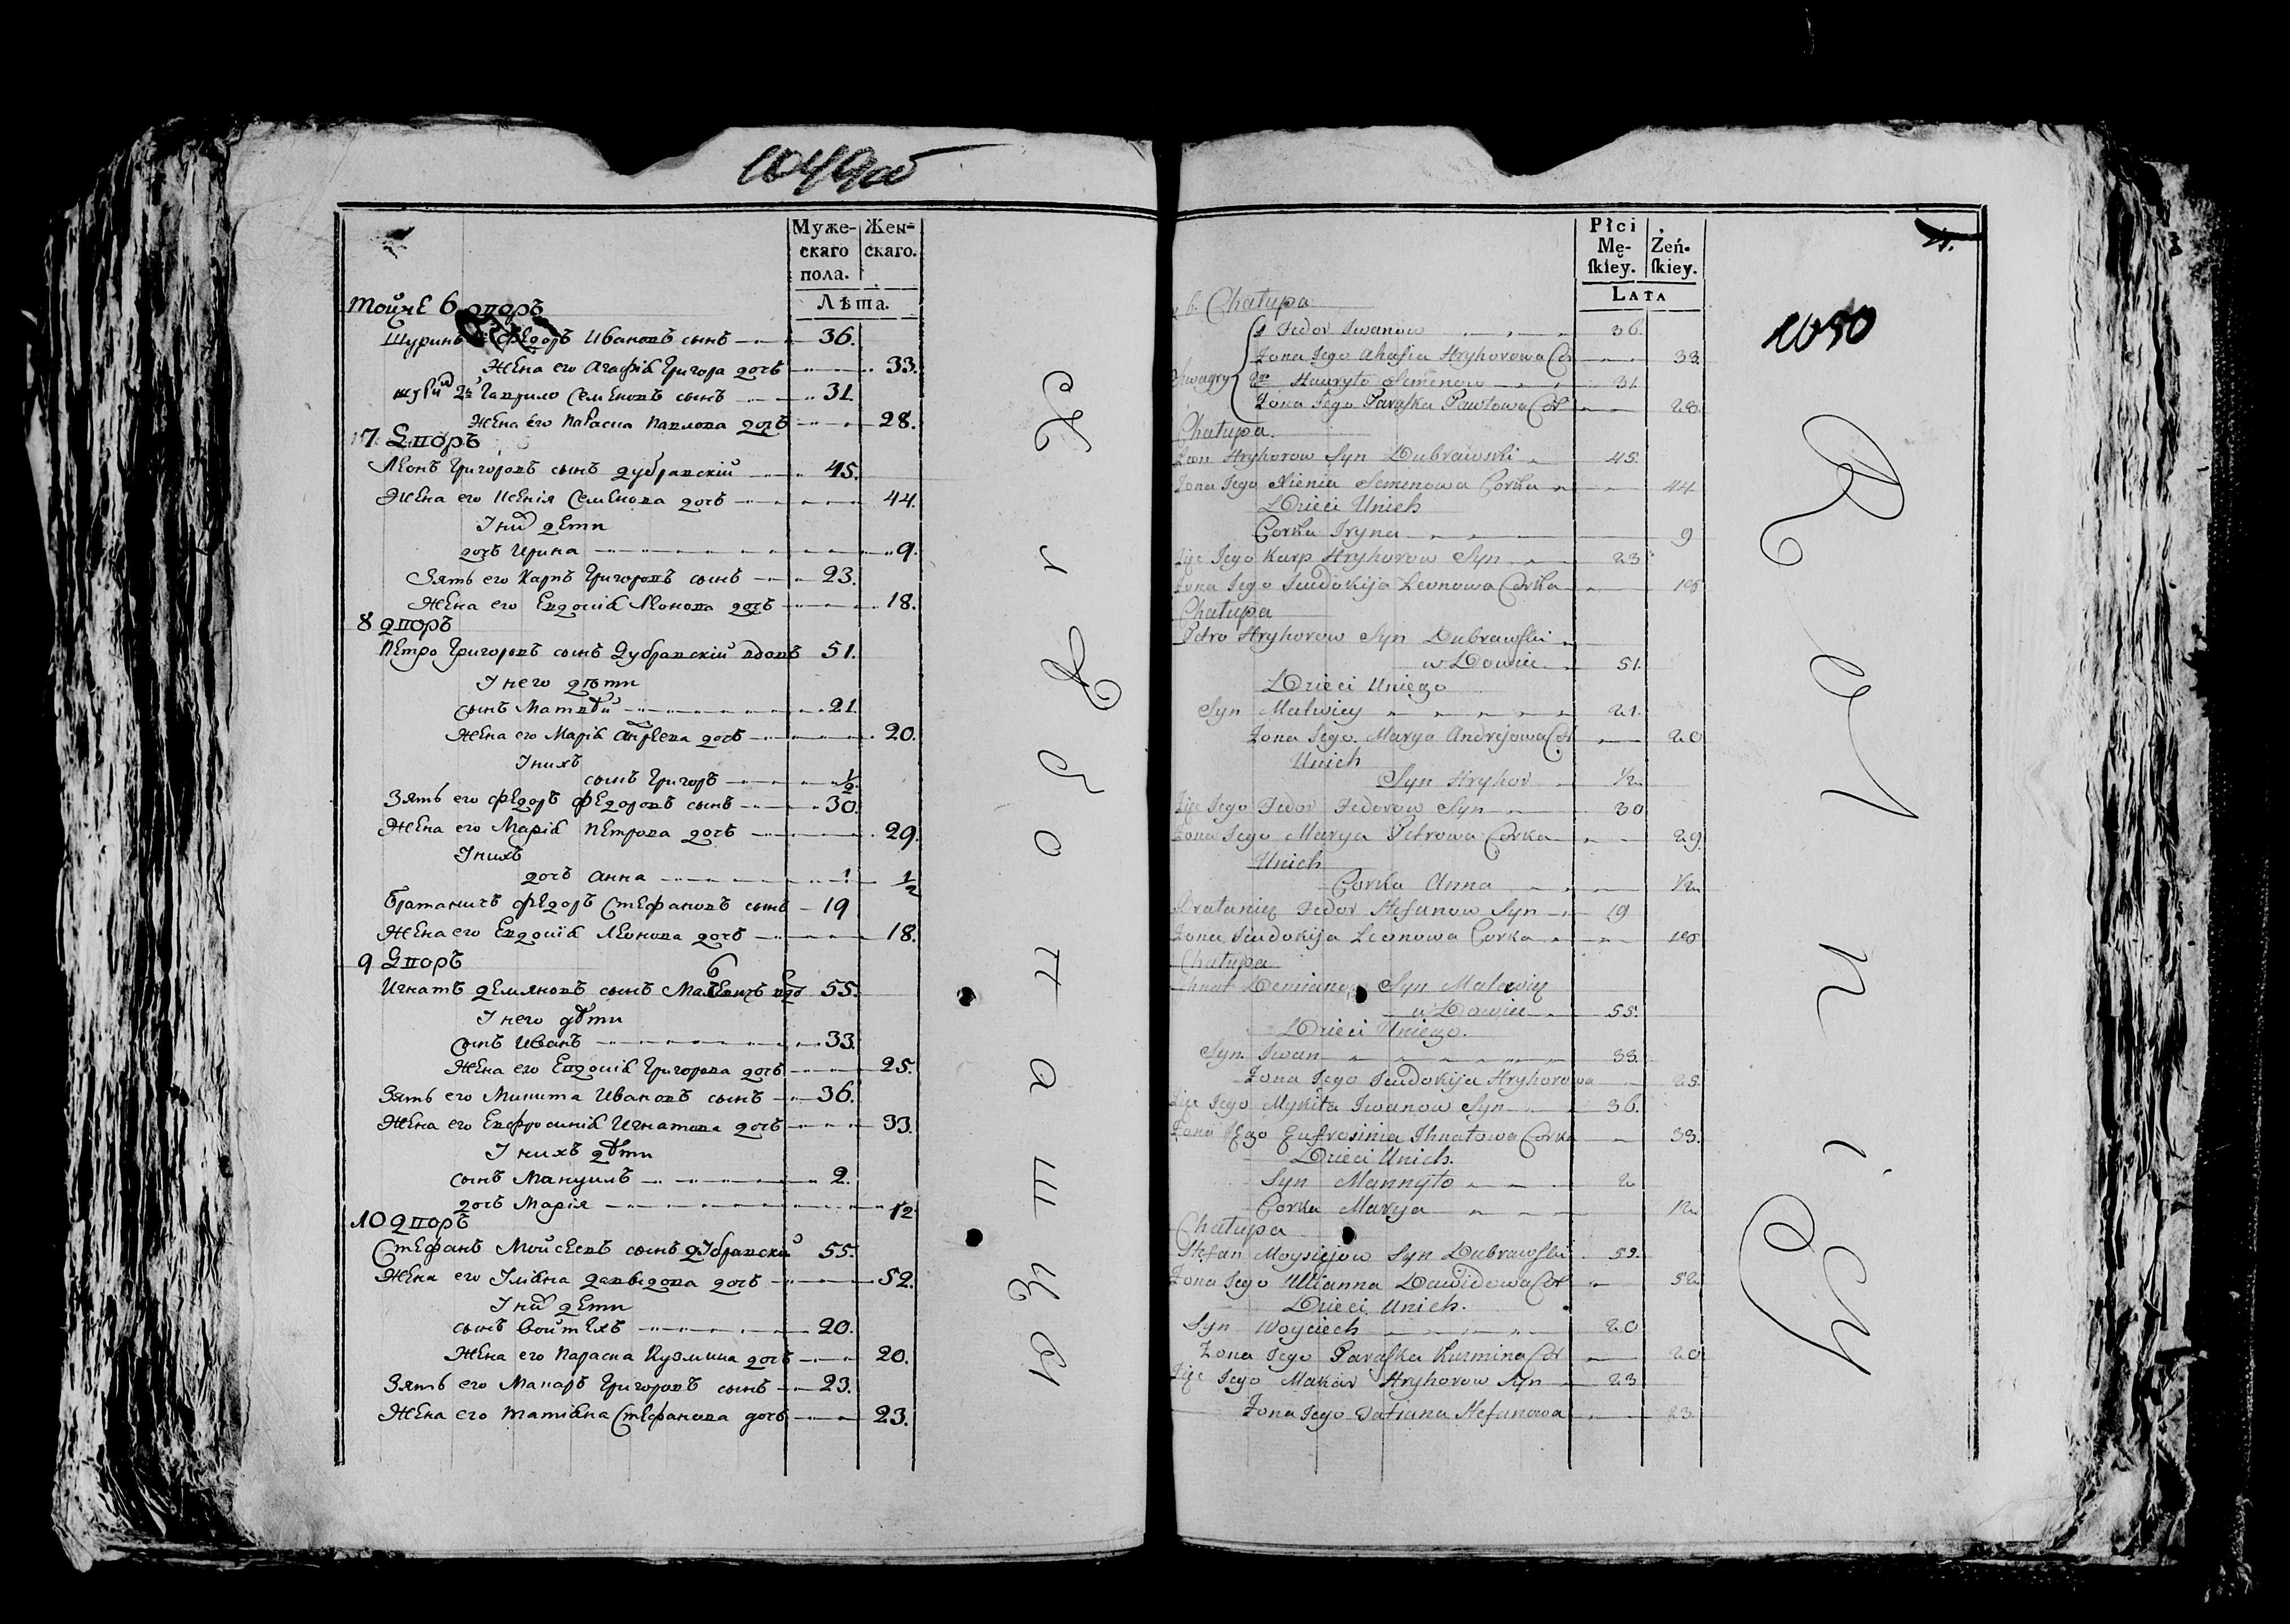 1049об
Муже-
скаго
пола.
Жен-
скаго.
Лѣта.
тойже 6 дворъ
Шуринъ Федоръ Ивановъ сынъ 36.
Жена его Агафіа Григора дочь 33.
шурин 2й Гаврило Семеновъ сынъ 31
Жена его Параска Павлова дочь 28.
7 Дворъ
Леонъ Григоровъ сынъ Дубравскій 45.
Жена его Ксенія Семенова дочь 44.
У них дети
дочь Ирина 9.
Зять его Карпъ Григоровъ сынъ 23.
Жена его Евдокіа Леонова дочь 18.
8 дворъ
Петро Григоровъ сынъ Дубравскій вдовъ 51.
У него дѣти
сынъ Матвѣй 21.
Жена его Маріа Андреева дочь 20.
У нихъ
сынъ Григоръ ½
Зять его Федоръ Федоровъ сынъ 30.
Жена его Маріа Петрова дочь 29.
У нихъ
дочь Анна ½
Братаничъ Федоръ Стефановъ сынъ 19
Жена его Евдокіа Леонова дочь 18.
9 Дворъ
Игнатъ Демяновъ сынъ вдо 55.
У него дѣти
сынъ Иванъ 33.
Жена его Евдокіа Григорова дочь 25.
Зять его Микита Ивановъ сынъ 36.
Жена его Евфросиніа Игнатова дочь 33.
У нихъ дѣти
сынъ Мануилъ 2.
дочь Марія 12
10 дворъ
Стефанъ Мойсеевъ сынъ Дубравски 55.
Жена его Уліана Давыдова дочь 52.
У них дети
сынъ Войтехъ 20.
Жена его Параска Кузмина дочь 20.
Зять его Макаръ Григоровъ сынъ 23.
Жена его Татіана Стефанова дочь 23.
Płci
Mę-
ſkiey.
Żeń-
ſkiey.
LATA
1050
6. Chałupa
1 Fedor Iwanow 36.
Zona Jego Ahafia Hryhorowa Cor 33.
Szwagry 2do Hauryło Semenow 31.
Zona Jego Paraſka Pawłowa Cor 28.
Chałupa.
Leon Hryhorow Syn Dubrawski 45.
Zona Jego Xienia Semenowa Corka 44
Dzieci Unich
Corka Iryna 9
Zięć Jego Karp Hryhorow Syn 23
Zona Jego Jeudokija Leonowa Corka 18
Chałupa
Petro Hryhorow Syn Dubrawſki
wDowiec 51.
Dzieci Uniego
Syn Matwiey 21.
Zona Jego Marya Andrejowa Cor 20
Unich
Syn Hryhor ½
Zięć Jego Fedor Fedorow Syn 30
Zona Jego Marya Petrowa Corka 29
Unich
Corka Anna ½
Bratanicz Fedor Stefanow Syn 19
Zona Jeudokija Leonowa Corka 18
Chałupa
Ihnat Demianow Syn
wDowiec 55.
Dzieci Uniego.
Syn Iwan 33.
Zona Jego Jeudokija Hryhorowa 25.
Zięć Jego Mykita Iwanow Syn 36.
Zona Jego Eufrosinia Ihnatowa Corka 33.
Dzieci Unich.
Syn Mannyło 2
Corka Marya 12
Chałupa
Stefan Moysiejow Syn Dubrawſki
Zona Jego Ullianna Dawidowa Cor 52
Dzieci Unich.
Syn Woyciech 20
Zona Jego Paraſka Kuzmina Cor 20
Zięć Jego Makar Hryhorow Syn 23
Zona Jego Tatiana Stefanowa 23